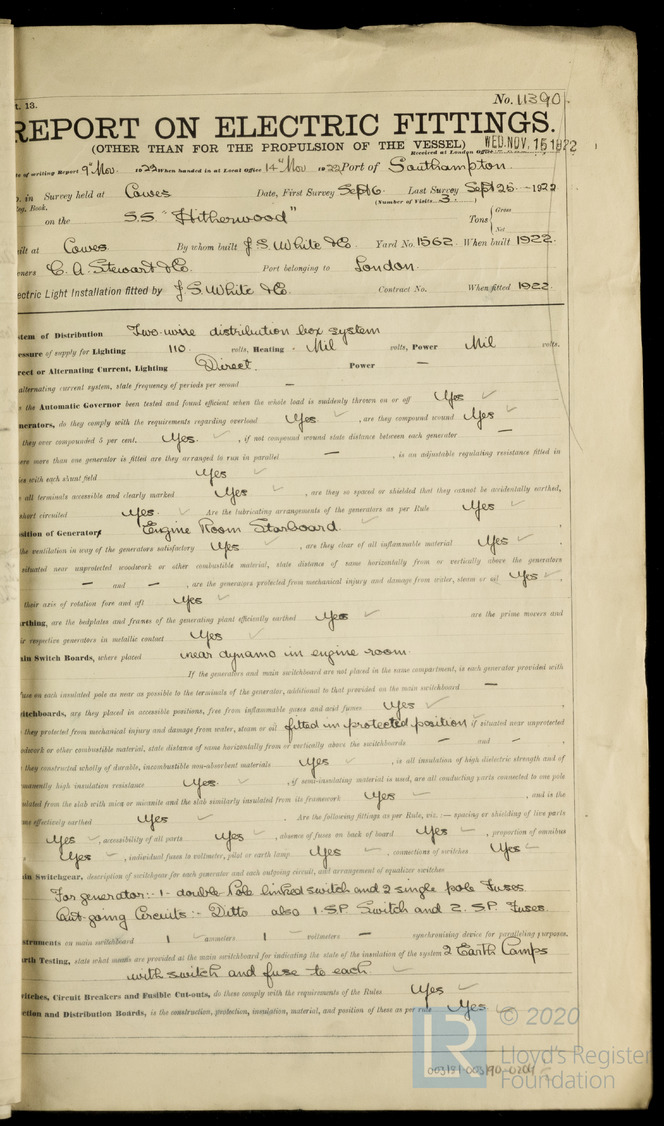 t. 13. No. 11390.
REPORT ON ELECTRIC FITTINGS.
(OTHER THAN FOR THE PROPULSION OF THE VESSEL) WED. NOV. 15 1922
Received at London Office
of writing Report 9th Nov 1922 When handed in at Local Office 14th Nov 1922 Port of Southampton
in Survey held at Cowes Date, First Survey Sept 6 Last Survey Sept 26 - 1922
Reg. Book. (Number of Visits 3.)
on the S.S. "Hitherwood" Tons { Gross Net
built at Cowes By whom built J. S. White & Co. Yard No. 1562. When built 1922.
owners C. A. Stewart & Co. Port belonging to London.
Electric Light Installation fitted by J. S. White & Co. Contract No. When fitted 1922.
stem of Distribution Two-wire distribution box system
essure of supply for Lighting 110 volts, Heating - Nil volts, Power Nil volts.
rect or Alternating Current, Lighting Direct. Power —
alternating current system, state frequency of periods per second —
the Automatic Governor been tested and found efficient when the whole load is suddenly thrown on or off Yes
nerators, do they comply with the requirements regarding overload Yes , are they compound wound Yes
they over compounded 5 per cent. Yes. , if not compound wound state distance between each generator —
ere more than one generator is fitted are they arranged to run in parallel — , is an adjustable regulating resistance fitted in
ies with each shunt field Yes
all terminals accessible and clearly marked Yes , are they so spaced or shielded that they cannot be accidentally earthed,
short circuited Yes. Are the lubricating arrangements of the generators as per Rule Yes
osition of Generators Engine Room Starboard.
the ventilation in way of the generators satisfactory Yes , are they clear of all inflammable material Yes
situated near unprotected woodwork or other combustible material, state distance of same horizontally from or vertically above the generators
— and — , are the generators protected from mechanical injury and damage from water, steam or oil Yes
their axis of rotation fore and aft Yes
arthing, are the bedplates and frames of the generating plant efficiently earthed Yes are the prime movers and
ir respective generators in metallic contact Yes
ain Switch Boards, where placed near dynamo in engine room.
If the generators and main switchboard are not placed in the same compartment, is each generator provided with
fuse on each insulated pole as near as possible to the terminals of the generator, additional to that provided on the main switchboard —
itchboards, are they placed in accessible positions, free from inflammable gases and acid fumes Yes
they protected from mechanical injury and damage from water, steam or oil fitted in protected position if situated near unprotected
odwork or other combustible material, state distance of same horizontally from or vertically above the switchboards — and — ,
they constructed wholly of durable, incombustible non-absorbent materials Yes , is all insulation of high dielectric strength and of
manently high insulation resistance Yes. , if semi-insulating material is used, are all conducting parts connected to one pole
ulated from the slab with mica or micanite and the slab similarly insulated from its framework Yes , and is the
me effectively earthed Yes Are the following fittings as per Rule, viz.:— spacing or shielding of live parts
Yes , accessibility of all parts Yes , absence of fuses on back of board Yes , proportion of omnibus
Yes , individual fuses to voltmeter, pilot or earth lamp Yes , connections of switches Yes
ain Switchgear, description of switchgear for each generator and each outgoing circuit, and arrangement of equalizer switches
For generator:- 1- double Pole linked switch and 2 single pole Fuses.
Out going Circuits:- Ditto also 1. S.P. Switch and 2. S.P. Fuses.
struments on main switchboard 1 ammeters 1 voltmeters — synchronising device for paralleling purposes.
arth Testing, state what means are provided at the main switchboard for indicating the state of the insulation of the system 2 Earth Lamps
with switch and fuse to each.
itches, Circuit Breakers and Fusible Cut-outs, do these comply with the requirements of the Rules Yes
ction and Distribution Boards, is the construction, protection, insulation, material, and position of these as per rule Yes.
© 2020
LR Lloyd's Register
Foundation